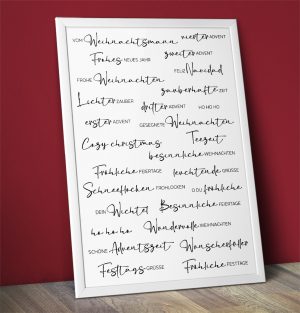 VOM Weihnachtsmann vierter ADVENT
Frohes NEUES JAHR zweiter ADVENT
FELIZ Navidad
FROHE Weihnachten zauberhafte ZEIT
Lichter ZAUBER dritter ADVENT HO HO HO
erster ADVENT GESEGNETE Weihnachten
Cozy christmas Teezeit
besinnliche WEIHNACHTEN
Fröhliche FEIERTAGE leuchtende GRÜSSE
Schneeflocken FROHLOCKEN O DU fröhliche
DEIN Wichtel Besinnliche FEIERTAGE
ho ho ho Wundervolle WEIHNACHTEN
SCHÖNE Adventszeit Wunscherfüller
Festtags GRÜSSE Fröhliche FESTTAGE